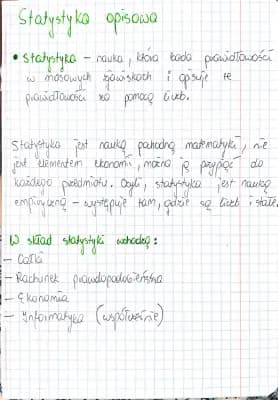 Statystyka opisowa
• Statystyka – nauka, która bada prawidłowości
w masowych zjawiskach i opisuje te
prawidłowości za pomocą liczb.
Statystyka jest nauką pochodną matematyki, nie
jest elementem ekonomii, można ją przypiąć do
każdego przedmiotu. Czyli, statystyka jest nauką
empiryczną – występuje tam, gdzie są liczb i
W skład statystyki wchodzą:
– Całki
– Rachunek prawdopodobieństwa
– Ekonomia
– Informatyka (współcześnie)